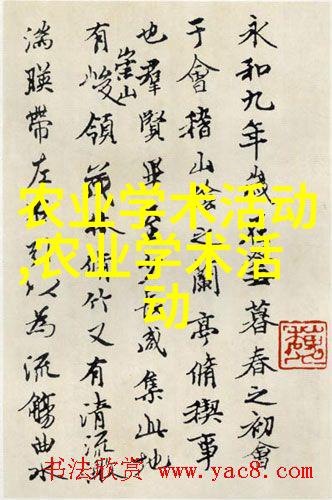 永和九年歲暮春之初會
于會稽山陰之蘭亭脩稧事
也羣賢畢至咸集此地
有崇山峻領茂林脩竹又有清流激
湍暎帶左右引以為流觴曲水
农业学术活动
,农业学术活
动
书法欣赏 www.yac8.com